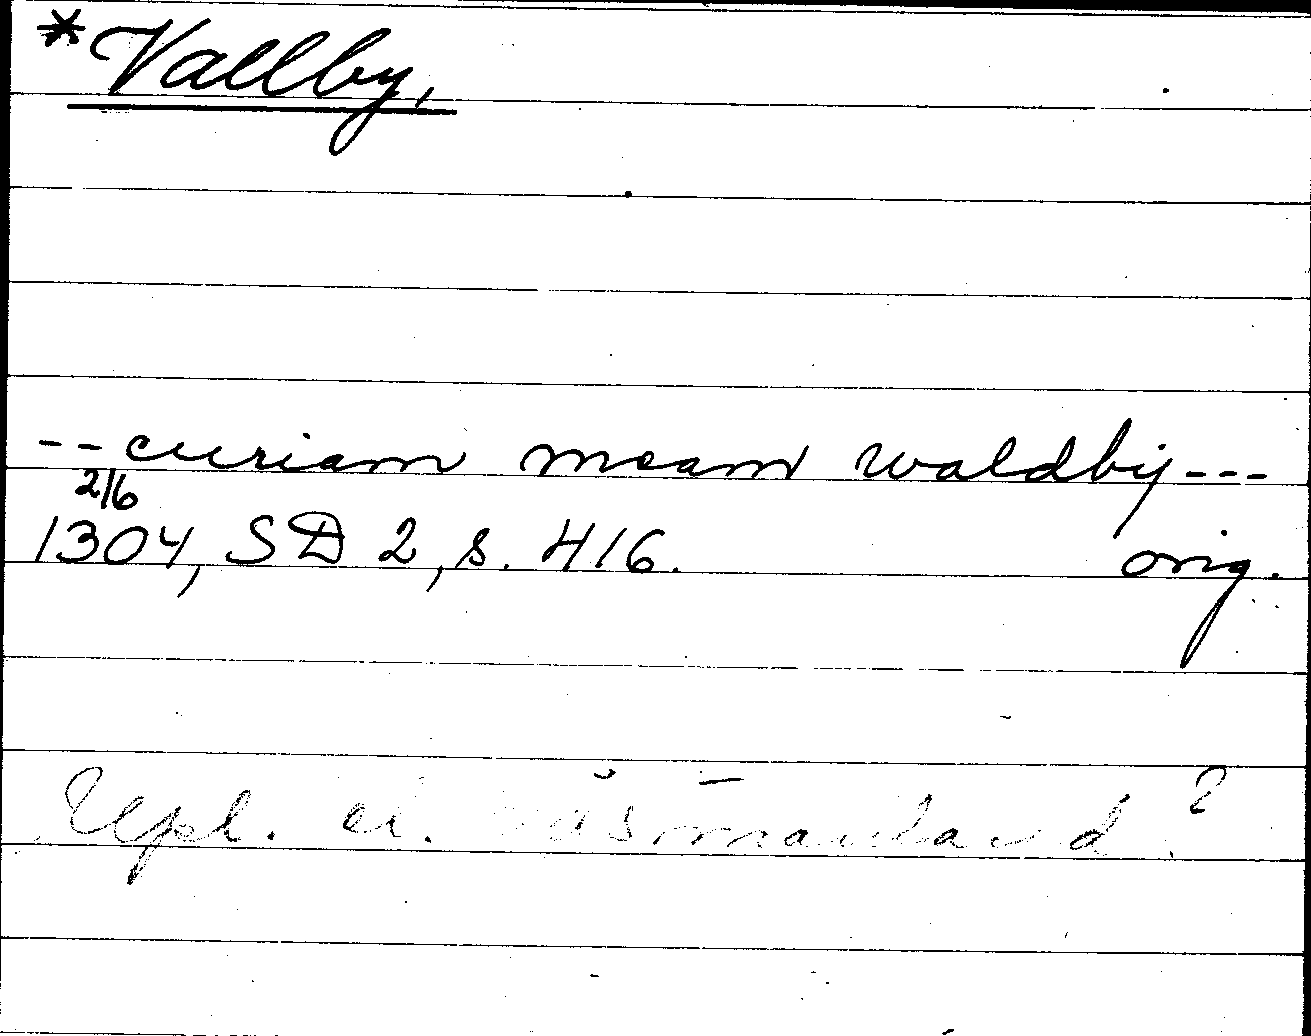 *Vallby,
--curiam meam waldby---
2/6
1304, SD 2, s. 416. orig.
Upl. el. Västmanland?